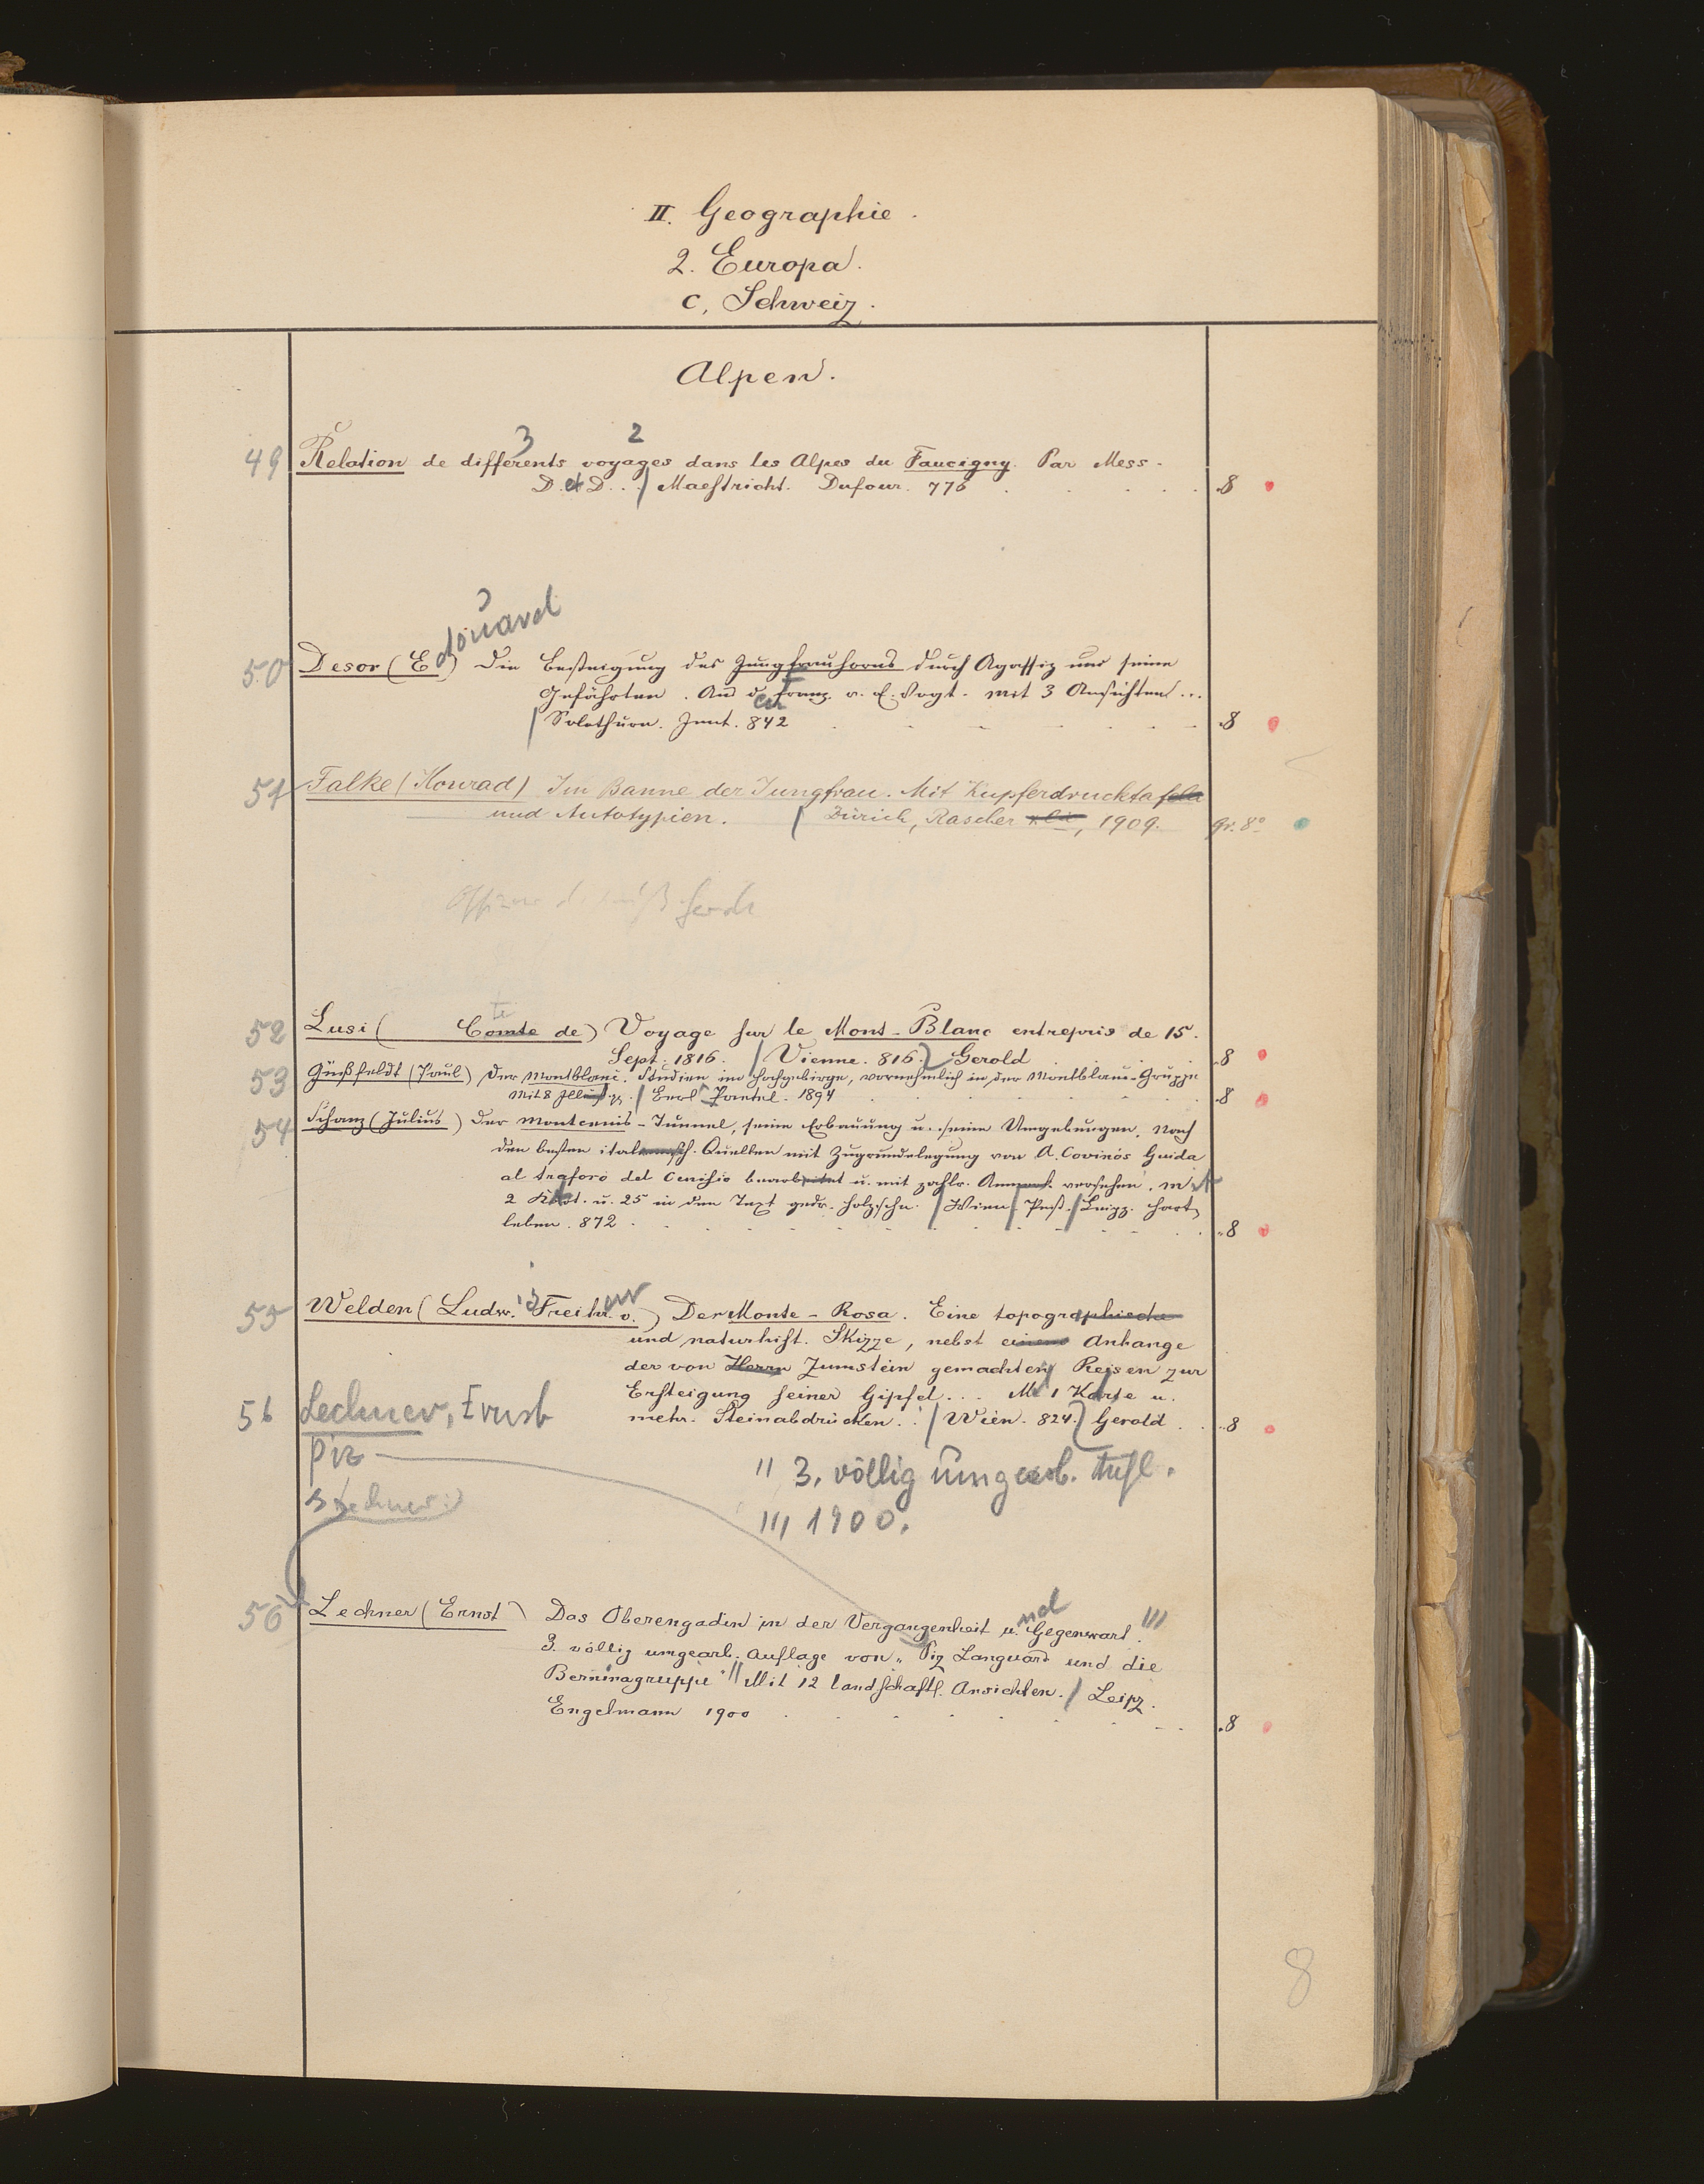 II. Geographie.
2. Europa.
c, Schweiz.
Alpen.
3 2
49 Relation de differents voyages dans les Alpes du Faucigny. Par Mess.
D. et D... / Maestricht. Dufour. 776 .8
50 Desor (Edouard) Die Besteigung des Jungfrauhorns durch Agassiz und seine
Gefährten. Aus d. Franz. v. C. Vogt. Mit 3 Ansichten...
/ Solothurn. Jent. 842 .8
51 Falke (Konrad) Im Banne der Jungfrau. Mit Kupferdrucktafeln
und Autotypien. / Zürich, Rascher, 1909. gr. 8°
52 Lusi ( Comte de) Voyage sur le Mont-Blanc entrepris de 15.
Sept. 1816. / Vienne. 816.) Gerold .8
53 Güßfeldt (Paul) Der Montblanc. Studien im Hochgebirge, vornehmlich in der Montblanc-Gruppe
Mit 8 Illustr. / Berl. Paetel. 1894 .8
54 Schanz (Julius) Der Montcenis-Tunnel, seine Erbauung u. seine Umgebungen. Nach
den besten italienisch. Quellen mit Zugrundelegung von A. Covinos Guida
al traforo del Cenisio bearbeitet u. mit zahlr. Anmerk. versehen. Mit
2 Kart. u. 25 in den Text gedr. Holzschn. / Wien / Pest / Leipz. Hart
leben. 872 .8
55 Welden (Ludw. Freiherr v.) Der Monte-Rosa. Eine topographische
und naturhist. Skizze, nebst einem Anhange
der von Herrn Zumstein gemachten Reisen zur
Ersteigung seiner Gipfel... M. 1 Karte u.
mehr. Steinabdrücken.. / Wien. 824.) Gerold .8
56 Lechner, Ernst
Piz
" 3. völlig umgearb. Aufl.
Lechner
/// 1900.
56 Lechner (Ernst) Das Oberengadin in der Vergangenheit und Gegenwart. ///
3. völlig umgearb. Auflage von „Piz Languard und die
Berninagruppe" // Mit 12 landschaftl. Ansichten. / Leipz.
Engelmann 1900 .8
8